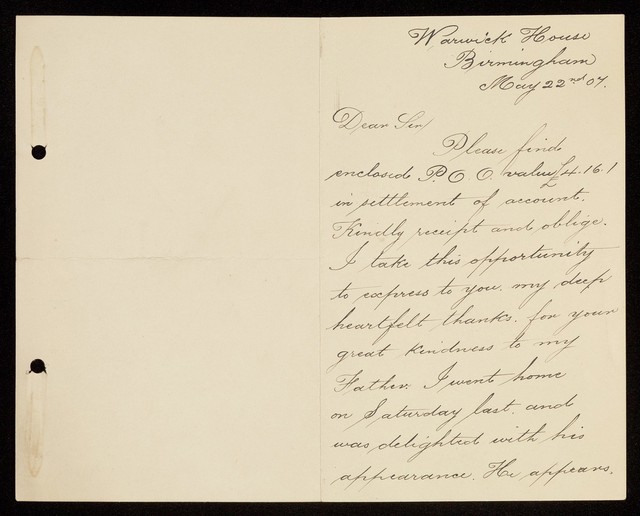 Warwick House
Birmingham
May 22nd 07.
Dear Sir/
Please find
enclosed P.O.O. value £4.16.1
in settlement of account.
Kindly receipt and oblige.
I take this opportunity
to express to you. my deep
heartfelt thanks. for your
great kindness to my
Father. I went home
on Saturday last. and
was delighted with his
appearance. He appears.